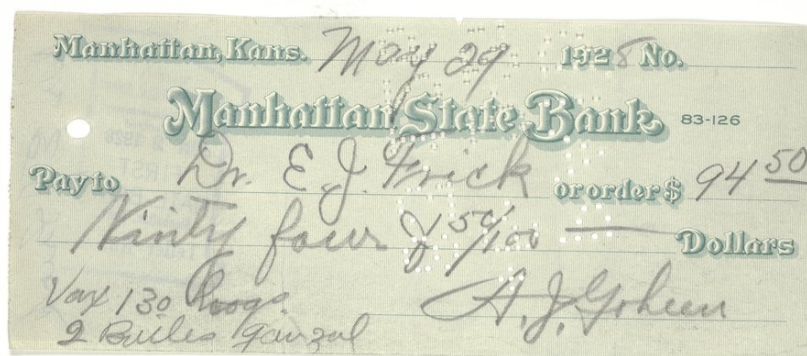 Manhattan, Kans. May 29 1928 No.
Manhattan State Bank 83-126
Pay to Dr. E. J. Frick or order $ 94 50
Ninty four & 50/100 Dollars
Vax 130 Hogs. A. J. Goheen
2